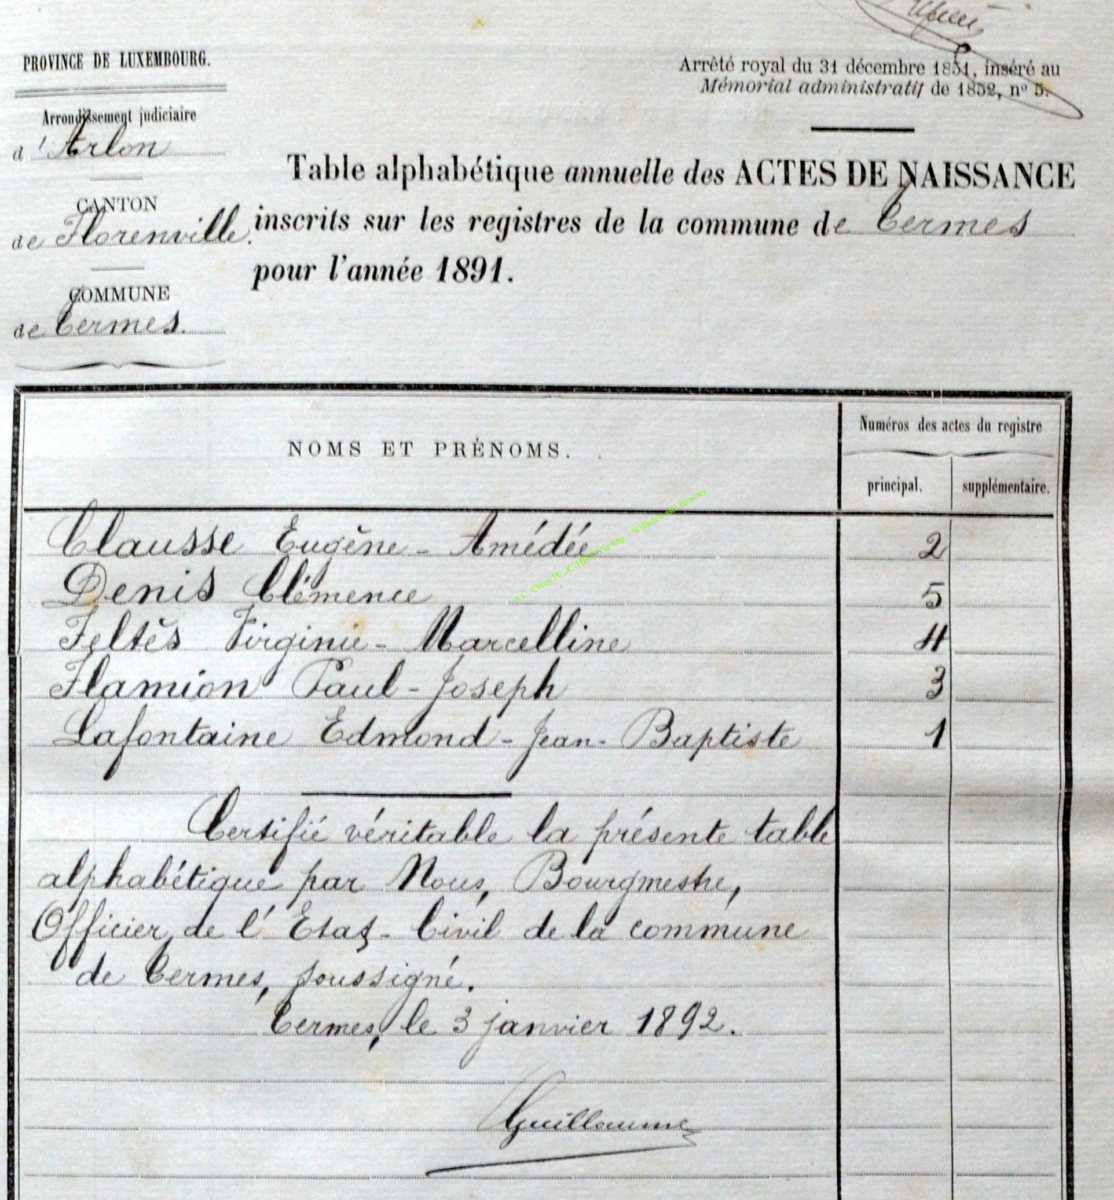 PROVINCE DE LUXEMBOURG.
Arrondissement judiciaire
d'Arlon
CANTON
de Florenville.
COMMUNE
de Termes.
Arrêté royal du 31 décembre 1851, inséré au
Mémorial administratif de 1852, nº 5.
Table alphabétique annuelle des ACTES DE NAISSANCE
inscrits sur les registres de la commune de Termes
pour l'année 1891.
NOMS ET PRÉNOMS.
Numéros des actes du registre
principal.
supplémentaire.
Clausse Eugène-Amédée 2
Denis Clémence 5
Feltès Virginie-Marcelline 4
Flamion Paul-Joseph 3
Lafontaine Edmond-Jean-Baptiste 1
Certifié véritable la présente table
alphabétique par Nous, Bourgmestre,
Officier de l'État-Civil de la commune
de Termes, soussigné.
Termes, le 3 janvier 1892.
Guillaume